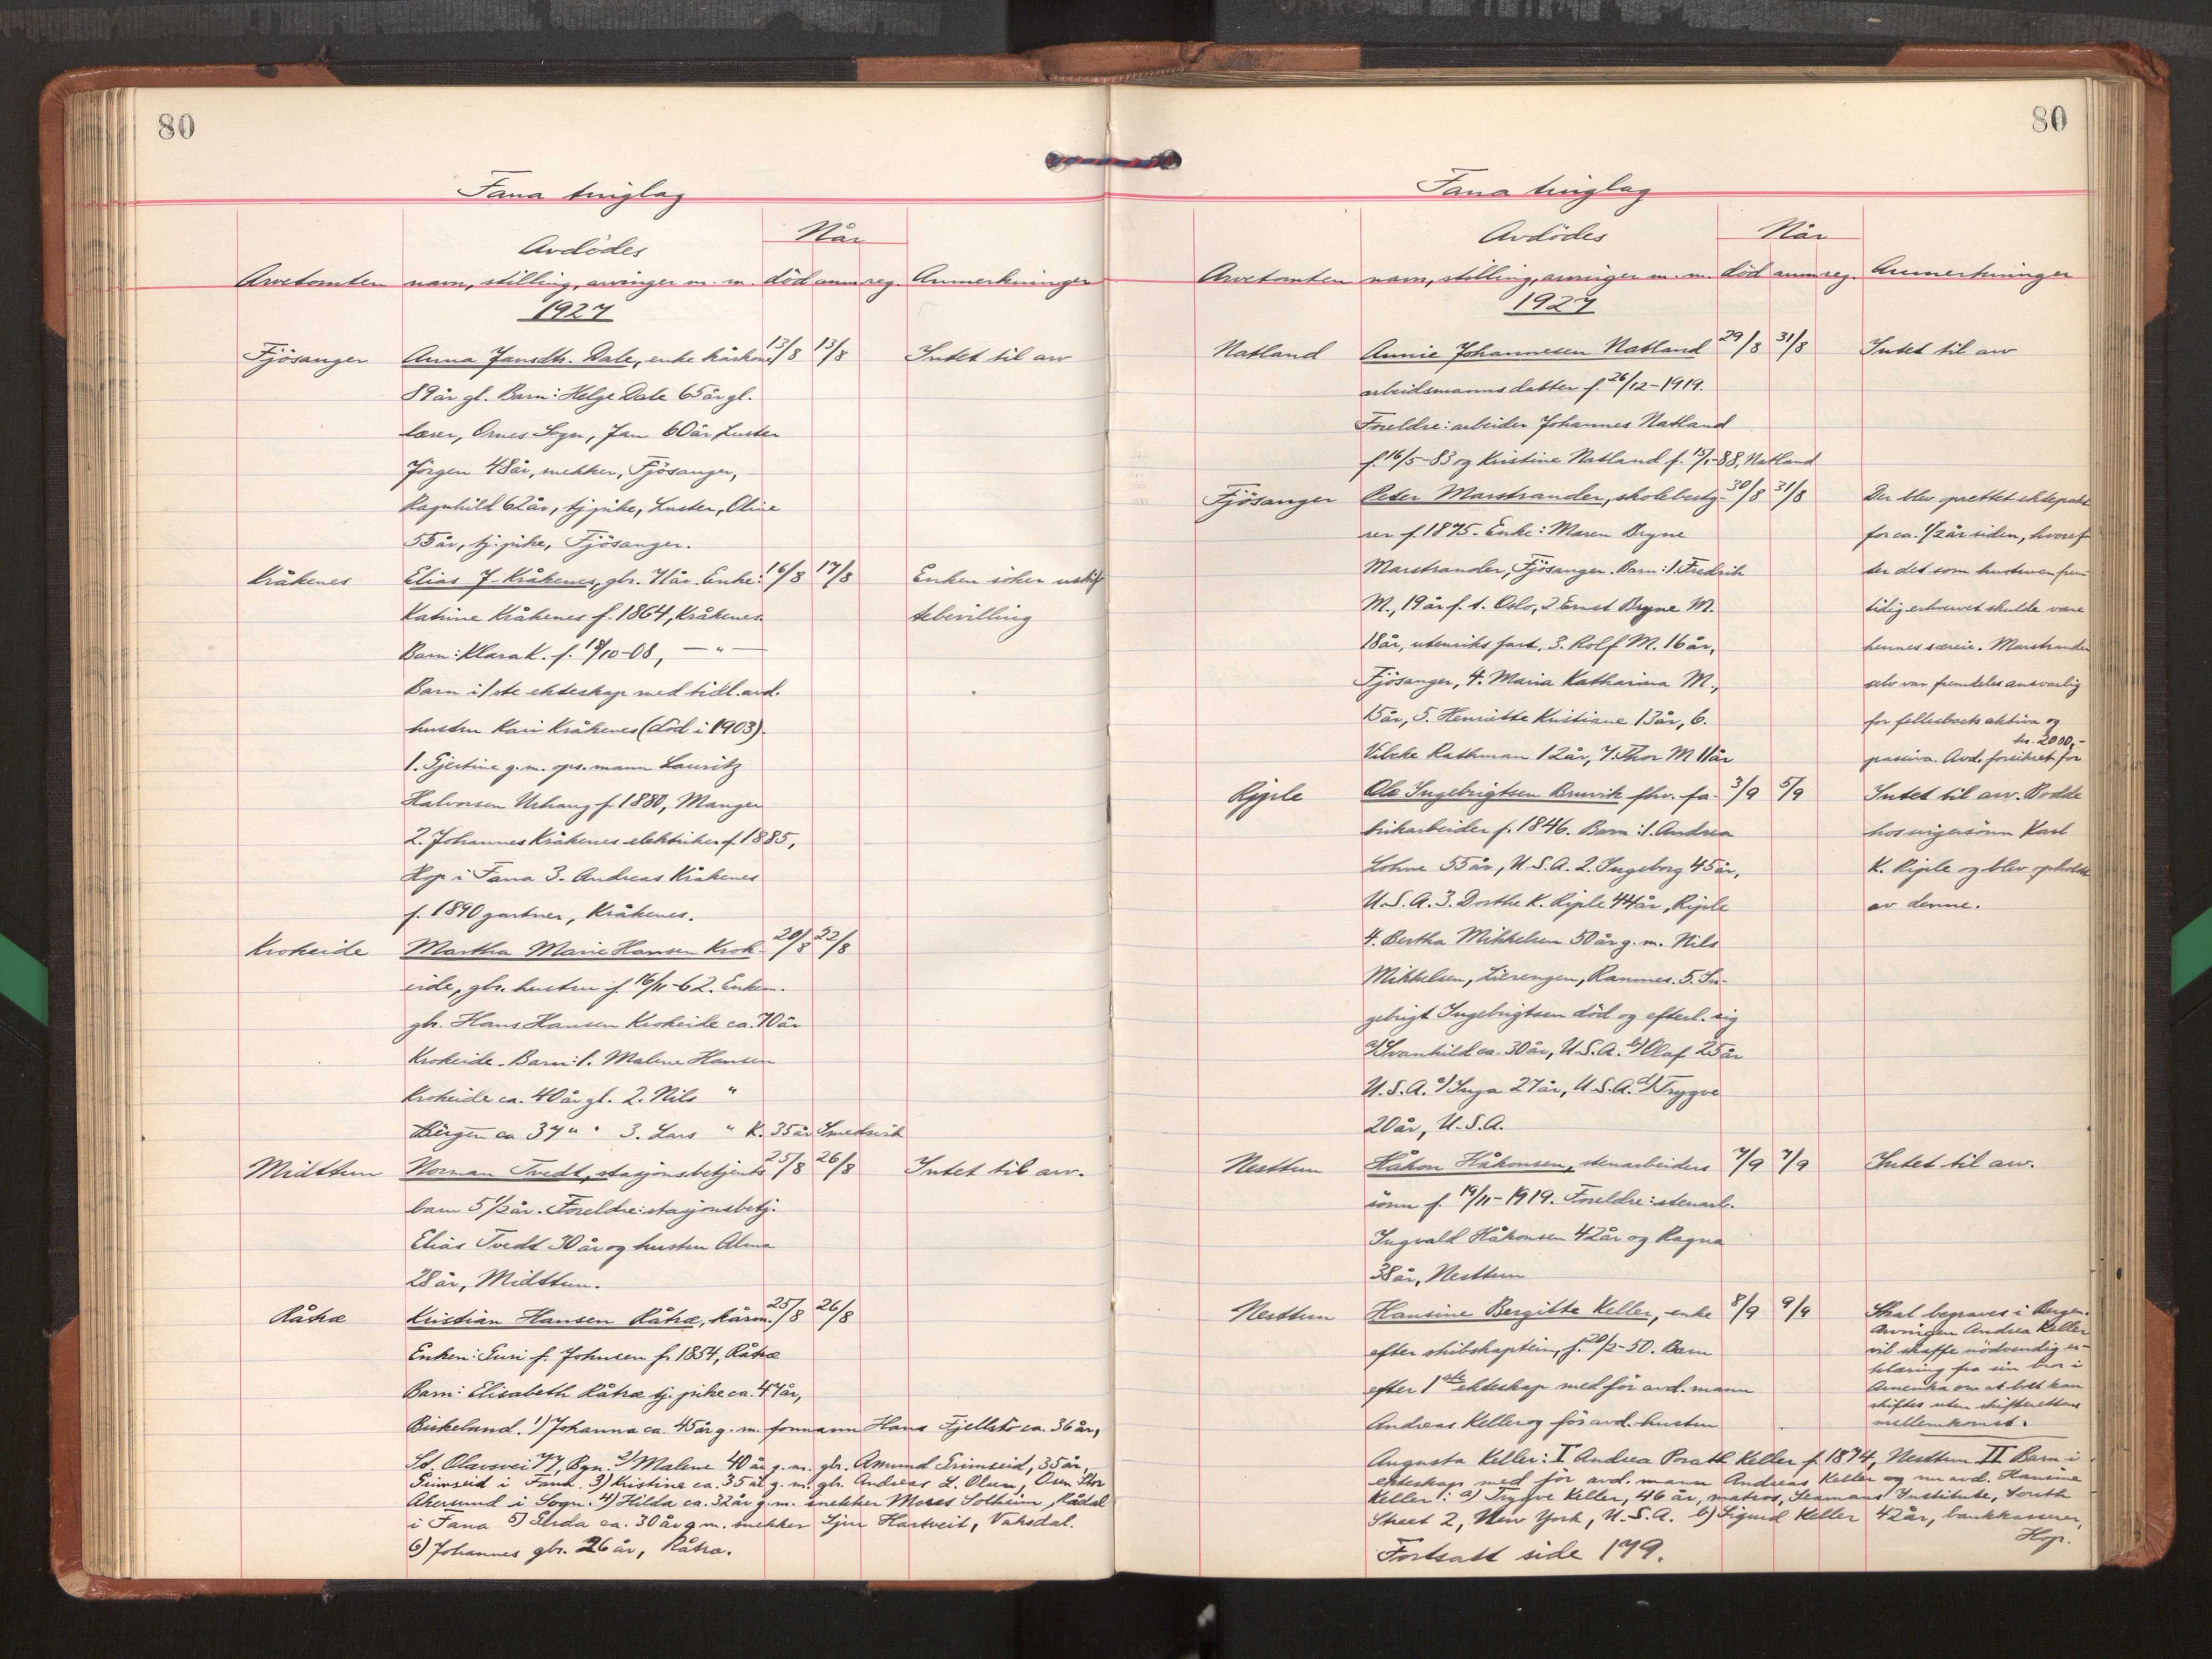 80
Fana tinglag
Avdödes
Når
Arvetomten navn, stilling, arvinger m. m. död anm reg. Anmerkninger
1927
Fjösanger Anna Jansdtr. Dale, enke kårkone 13/8 13/8 Intet til arv
89 år gl. Barn: Helge Dale 65 år gl.
lærer, Ornes Sogn, Jan 60 år, Luster
Jörgen 48 år, snekker, Fjösanger,
Ragnhild 62 år, tj. pike, Luster, Oline
55 år, tj. pike, Fjösanger.
Kråkenes Elias J. Kråkenes, gbr. 71 år. Enke: 16/8 17/8 Enken söker uskif
Katrine Kråkenes f. 1864, Kråkenes. tebevilling
Barn: Klara K. f. /10-08, — " —
Barn i 1ste ekteskap med tidl. avd.
hustru Kari Kråkenes (död i 1903).
1. Gjertine g.m. ops.mann Lauritz
Halvorsen f. 1880, Manger
2. Johannes Kråkenes elektriker f. 1885,
Hop i Fana 3. Andreas Kråkenes
f. 1890 gartner, Kråkenes.
Krokeide Martha Marie Hansen Krok- 20/8 22/8
eide, gbr. hustru f. 16/11-62. Enkem.
gbr. Hans Hansen Krokeide ca. 70 år
Krokeide. Barn: 1. Malene Hansen
Krokeide ca. 40 år gl. 2. Nils "
Bergen ca 37 " " 3. Lars " K. 35 år Smedsvik
Midttun Norman Tvedt, stasjonsbetjents 25/8 26/8 Intet til arv.
barn 5 1/2 år. Foreldre: stasjonsbetj.
Elias Tvedt 30 år og hustru Alma
28 år, Midttun.
Råtræ Kristian Hansen Råtræ, kårm. 25/8 26/8
Enken: Guri f. Johnsen f. 1854, Råtræ
Barn: Elisabeth Råtræ tj. pike ca. 47 år,
Birkeland. 1) Johanna ca. 45 år g. m. formann Hans Fjellstö ca. 36 år,
St. Olavsvei 77, Bgn. 2) Malene 40 år g. m. gbr. Amund Grimseid, 35 år,
Grimseid i Fana. 3) Kristine ca. 35 år g. m. gbr. Andreas L. Olsen, Osen Stor
Akersund i Sogn. 4) Hilda ca. 32 år g. m. snekker Moses Solheim, Rådal
i Fana 5) ca. 30 år g m. snekker Sjur Hartveit, Vaksdal.
6) Johannes gbr. 26 år, Råtræ.
80
Fana tinglag
Avdödes
Når
Arvetomten navn, stilling, arvinger m. m. död anm reg. Anmerkninger
1927
Natland Annie Johannesen Natland 29/8 31/8 Intet til arv
arbeidsmanns datter f. 26/12-1919.
Foreldre: arbeider Johannes Natland
f. 16/5-83 og Kristine Natland f. 15/1-88, Natland
Fjösanger Peter Marstrander, skolebesty- 30/8 31/8 Der blev oprettet ektepakt
rer f. 1875. Enke: Maren Bryne for ca. 1/2 år siden, hvoref
Marstrander, Fjösanger. Barn: 1. Fredrik ter det som hustruen frem
M., 19 år f. t. Oslo, 2 Ernst Bryne M. tidig erhvervet skulde være
18 år, utenriks fart, 3. Rolf M. 16 år, hennes særeie. Marstrander
Fjösanger, 4. Maria Katharina M., selv var fremdeles ansvarlig
15 år, 5. Henriette Kristiane 13 år, 6. for fellesboets aktiva og
Vibeke Rathman 12 år, 7. Thor M 11 år passiva. Avd. forsikret for kr. 2000,-
Riple Ole Ingebrigtsen Bruvik fhv. fa- 3/9 5/9 Intet til arv. Bodde
brikarbeider f. 1846. Barn: 1. Andrea hos svigersönn Karl
Lohne 55 år, U.S.A. 2. Ingeborg 45 år, K. Riple og blev opholdt
U.S.A. 3. Dorthe K. Riple 44 år, Riple av denne.
4. Bertha Mikkelsen 50 år g. m. Nils
Mikkelsen, Lierengen, Ramnes. 5. In-
gebrigt Ingebrigtsen död og efterl. sig
a) Svanhild ca. 30 år, U.S.A. b) Olaf 25 år
U.S.A. c) Inga 27 år, U.S.A. d) Trygve
20 år, U.S.A.
Nesttun Håkon Håkonsen, stenarbeiders 7/9 7/9 Intet til arv.
sönn f. 19/11-1919. Foreldre: stenarb.
Ingvald Håkonsen 42 år og Ragna
38 år, Nesttun
Nesttun Hansine Bergitte Keller, enke 8/9 9/9 Skal begraves i Bergen.
efter skibskaptein, f. 20/2-50. Barn
Arvingen Andrea Keller
vil skaffe nödvendig er-
klæring fra sin bror i
efter 1ste ekteskap med för avd. mann
Amerika om at boet kan
skiftes uten skifterettens
Andreas Keller og för avd. hustru mellemkomst.
Augusta Keller: I Andrea Porath Keller f. 1874, Nesttun II Barn i
ekteskap med för avd. mann Andreas Keller og nu avd. Hansine
Keller: a) Trygve Keller, 46 år, matros, Seamans Institute, South
Street 2, New York, U.S.A. b) Sigurd Keller 42 år, bankkasserer,
Hop.
Fortsatt side 179.